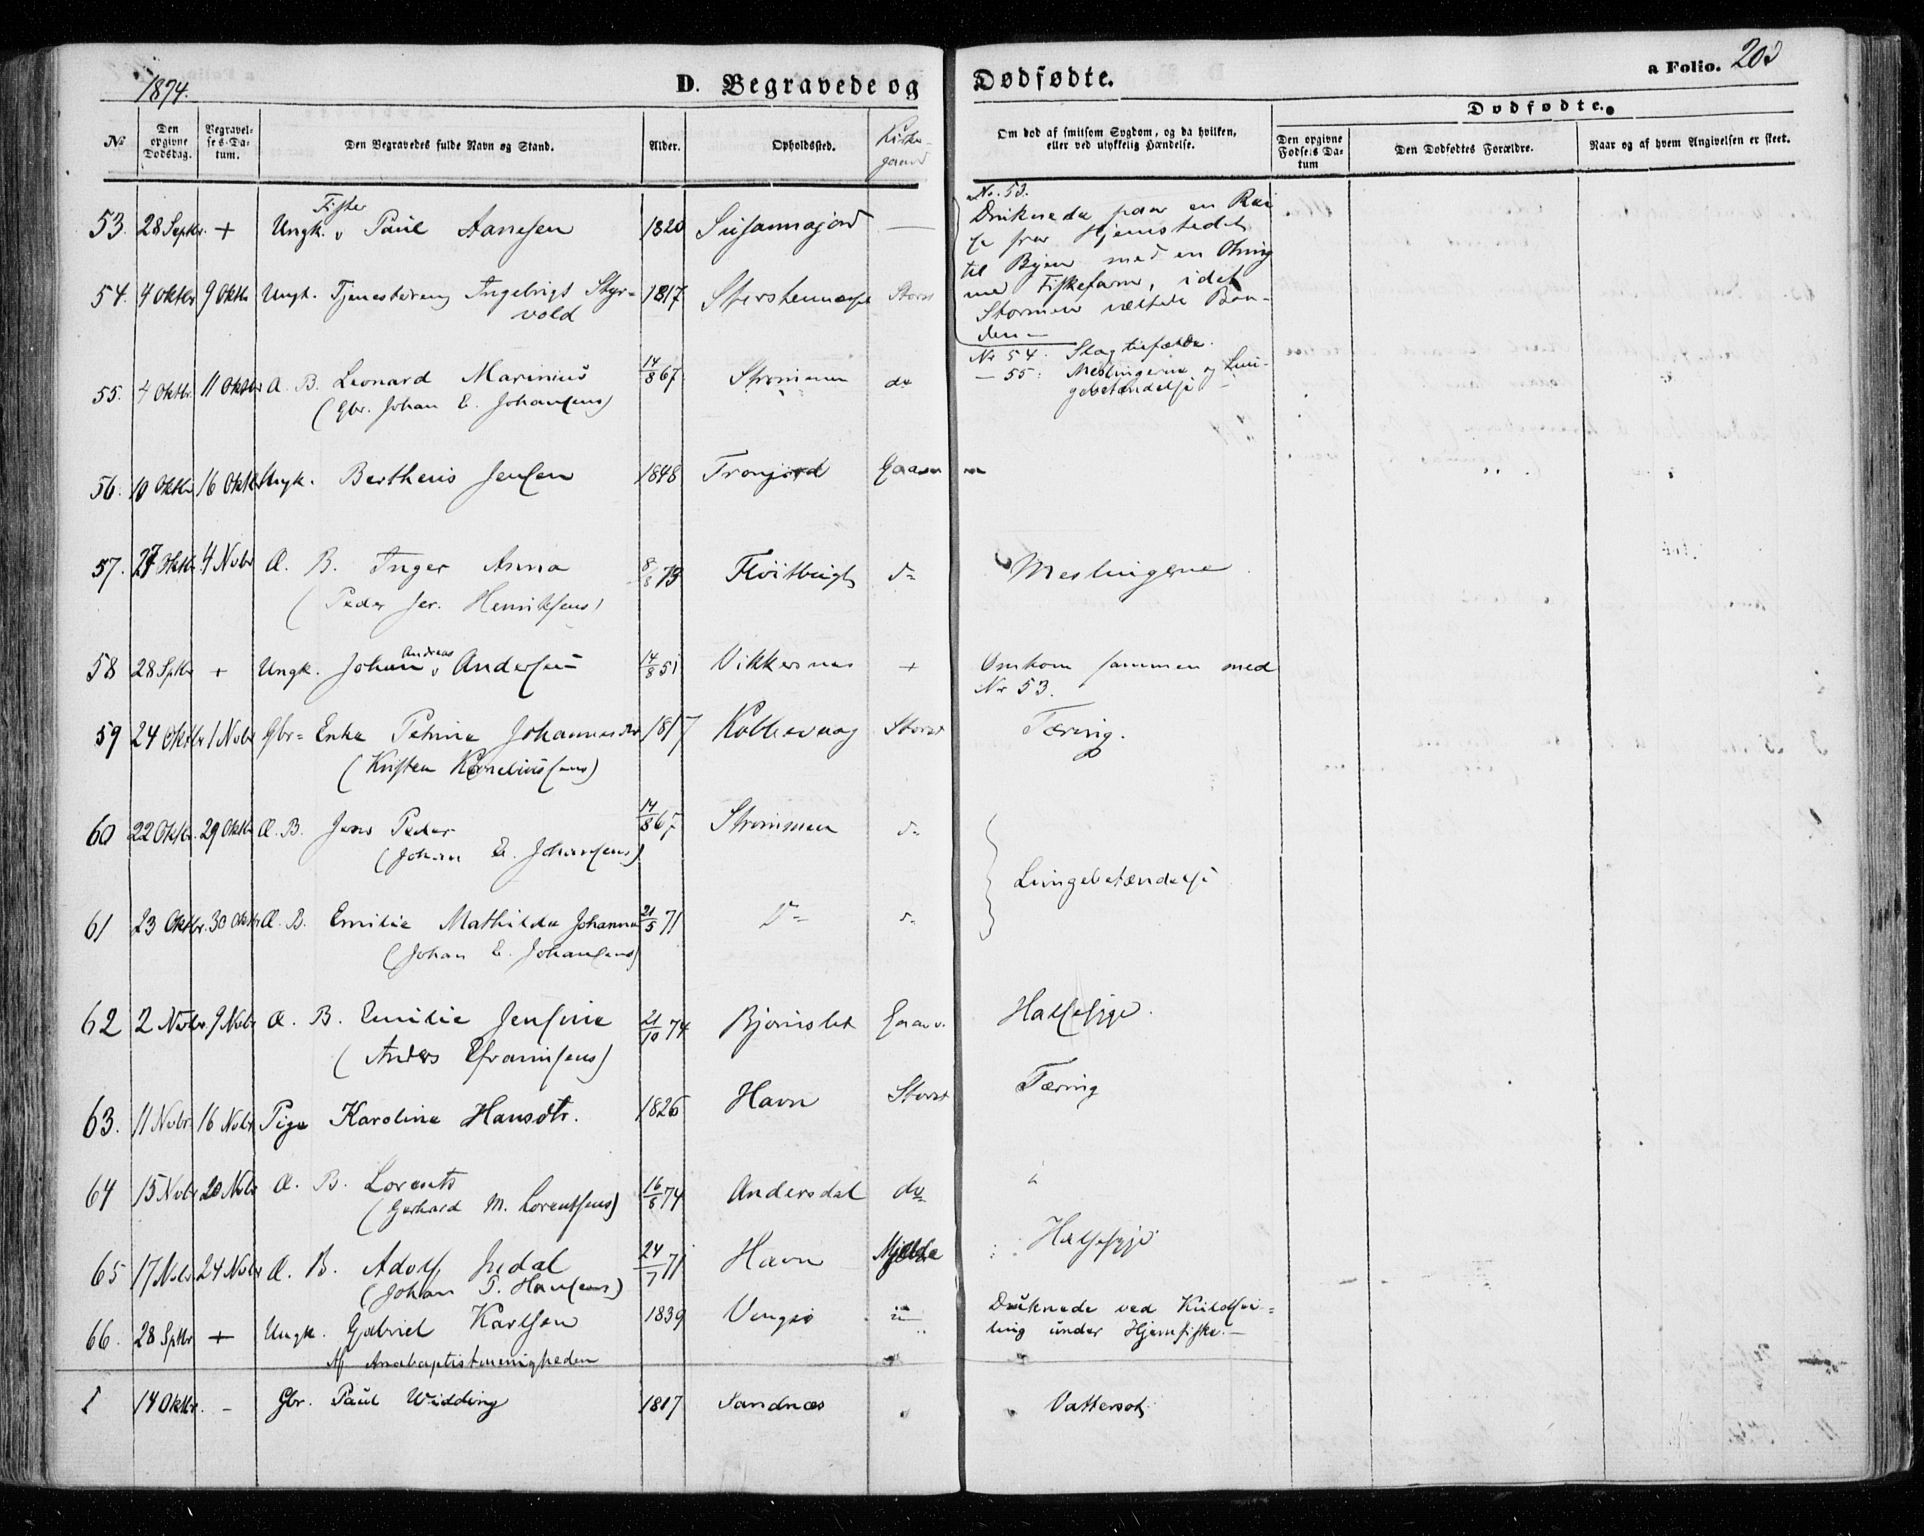 1874.
D. Begravede og Dødfødte.
a Folio. 203
Dødfødte.
No
Den opgivne Dødsdag.
Begravelses-Datum.
Den Begravedes fulde Navn og Stand.
Alder.
Opholdssted.
Kirkegaard
Om død af smitsom Sygdom, og da hvilken, eller ved ulykkelig Hændelse.
Den opgivne Fødsels Datum
Den Dødfødtes Forældre.
Naar og af hvem Angivelsen er skeet.
53. 28 Septbr. + Ungk. Fisker Paul Aanesen 1820 Susannajord —
No. 53.
Druknede paa en Reise fra Hjemstedet
til Byen med en Otring
med Fiskefarm, idet
Stormen væltede Baaden —
54. 4 Oktbr 9 Oktb Ungk. Tjenestedreng Ingebrigt Styrvold 1817 Storst
No 54. Slagtilfælde.
55. 4 Oktbr. 11 Oktbr Æ. B. Leonard Marinius 14/8 67 Strømmen do
(Gbr. Johan E. Johansens)
— 55: Meslingerne og Lungebetændelse
56. 10 Oktbr 16 Oktb Ungk. Bertheus Jensen 1848 Tronjord
57. 27 Oktb 4 Novbr Æ. B. Inger Anna 8/8 73 do Meslingerne
(Peder Jer. Henriksens)
58 28 Sptbr + Ungk. Johan Andreas Andersen 14/8 51 Vikkernes + Omkom sammen med
No 53.
59 24 Oktbr 1 Novbr Gbr= Enke Petrine Johannesdtr 1817 Kobbevaag Storst Tæring.
(Kristen Korneliussens)
60 22 Oktbr. 29 Oktb Æ. B. Jens Peder 14/8 67 Strømmen do
(Johan E. Johansens)
Lungebetændelse
61 23 Oktbr. 30 Oktbr Æ. B. Emilie Mathilda Johanna 21/5 71 Do do
(Johan E. Johansens)
62 2 Novbr. 9 Novbr Æ. B. Emilie Jensine 21/10 74 Bjørnslet Halsesyge.
(Anders Efraimsens)
63. 11 Novbr. 16 Novbr Pige Karoline Hansdtr. 1826 Havn Storst Tæring
64 15 Novbr 20 Novbr Æ. B. Lorents 16/8 74 Andersdal do
(Gerhard M. Lorentsens)
65 17 Novbr 24 Novbr Æ. B. Adolf Jredal 24/7 71 Havn Mjelde Halsesyge
(Johan P. Hansens)
66. 28 Sptbr + Ungk. Gabriel Karlsen 1839 Vengsø Druknede ved Kuldseiling under Hjemfiske. —
Af Anabaptistmenigheden
1 14 Oktbr. — Gbr. Paul Widding 1817 Sandnæs Vattersot